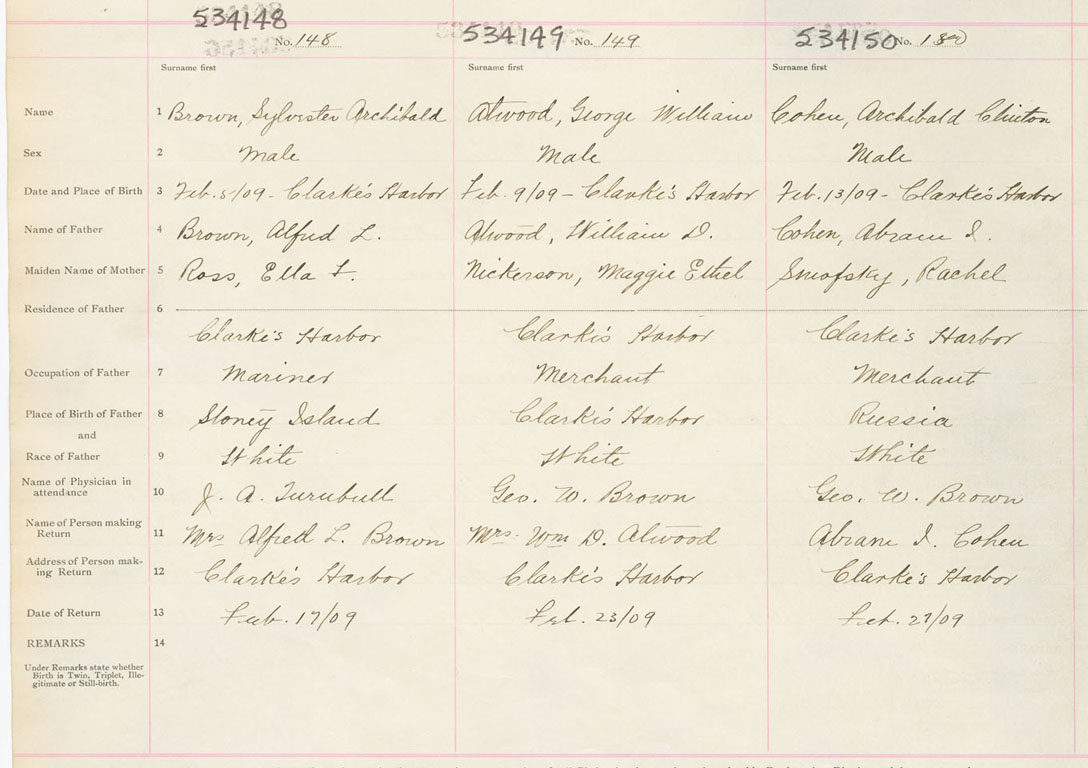 534148 No. 148 534149 No. 149 534150 No. 150
Surname first Surname first Surname first
Name 1 Brown, Sylvester Archibald Atwood, George William Cohen, Archibald Clinton
Sex 2 Male Male Male
Date and Place of Birth 3 Feb. 5/09 - Clarke's Harbor Feb. 9/09 - Clarke's Harbor Feb. 13/09 - Clarke's Harbor
Name of Father 4 Brown, Alfred L. Atwood, William D. Cohen, Abram I.
Maiden Name of Mother 5 Ross, Ella F. Nickerson, Maggie Ethel Smofsky, Rachel
Residence of Father 6
Clarke's Harbor Clark's Harbor Clarke's Harbor
Occupation of Father 7 Mariner Merchant Merchant
Place of Birth of Father 8 Stoney Island Clark's Harbor Russia
and
Race of Father 9 White White White
Name of Physician in
attendance 10 J. A. Turnbull Geo. W. Brown Geo. W. Brown
Name of Person making
Return 11 Mrs Alfred L. Brown Mrs. Wm D. Atwood Abram I. Cohen
Address of Person mak-
ing Return 12 Clarke's Harbor Clark's Harbor Clarke's Harbor
Date of Return 13 Feb. 17/09 Feb. 23/09 Feb. 27/09
REMARKS 14
Under Remarks state whether
Birth is Twin, Triplet, Ille-
gitimate or Still-birth.